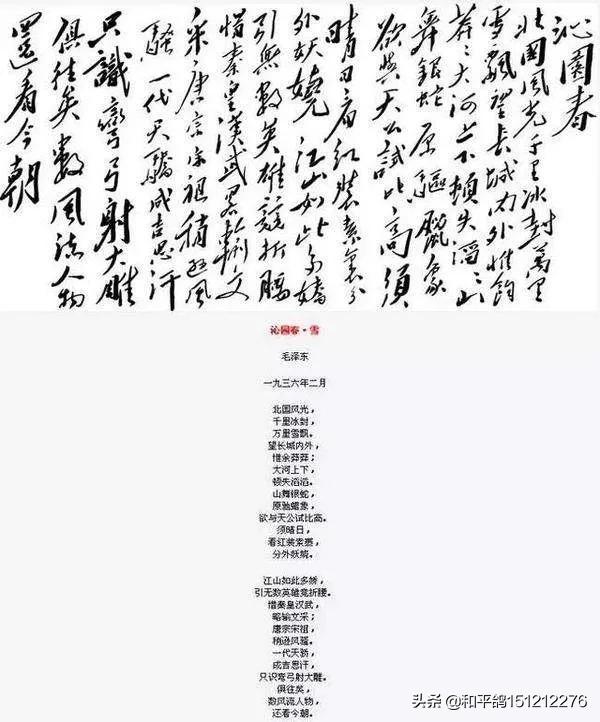 沁園春
北國風光千里冰封萬里
雪飄望長城内外惟餘
莽〻大河上下頓失滔〻山
舞銀蛇原驅臘象
欲與天公試比高須
晴日看紅裝素裹分
外妖嬈江山如此多嬌
引無數英雄競折腰
惜秦皇漢武畧輸文
采唐宗宋祖稍遜風
騷一代天驕成吉思汗
只識彎弓射大雕
俱往矣數風流人物
還看今朝
沁园春·雪
毛泽东
一九三六年二月
北国风光，
千里冰封，
万里雪飘。
望长城内外，
惟余莽莽；
大河上下，
顿失滔滔。
山舞银蛇，
原驰蜡象，
欲与天公试比高。
须晴日，
看红装素裹，
分外妖娆。
江山如此多娇，
引无数英雄竞折腰。
惜秦皇汉武，
略输文采；
唐宗宋祖，
稍逊风骚。
一代天骄，
成吉思汗，
只识弯弓射大雕。
俱往矣，
数风流人物，
还看今朝。
头条 @和平鸽151212276